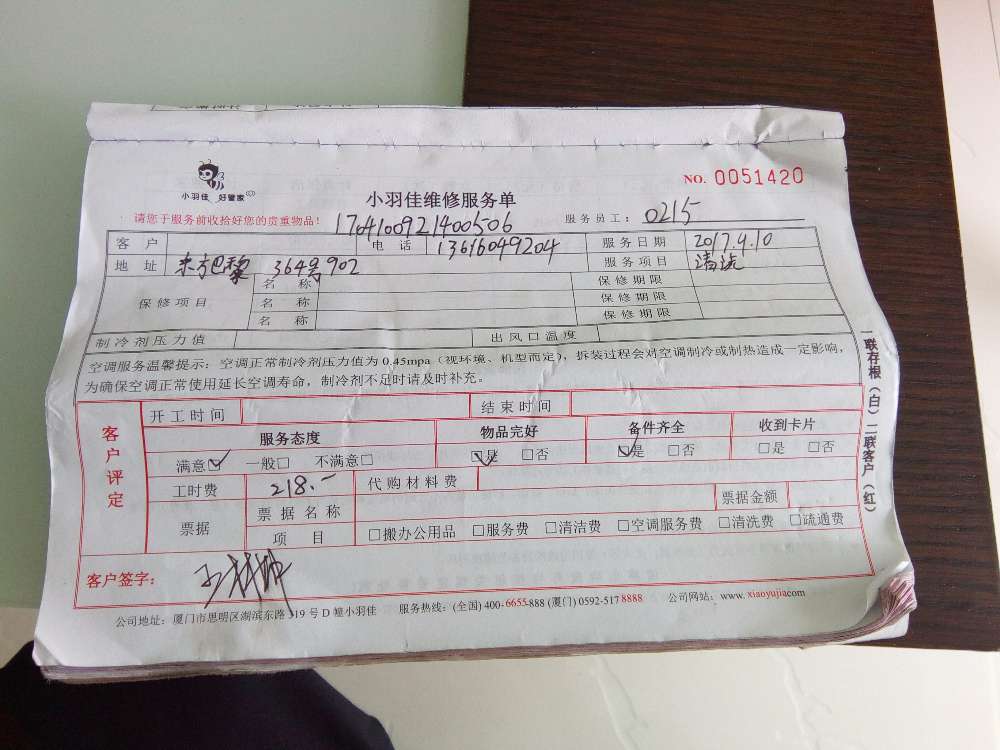 小羽佳 好管家
NO. 0051420
小羽佳维修服务单
请您于服务前收拾好您的贵重物品！
1704100921400506
服务员工： 0215
客户 电话 13616049204 服务日期 2017.4.10
地址 东方巴黎 364号902 服务项目 清洗
保修项目
名称 保修期限
名称 保修期限
名称 保修期限
制冷剂压力值 出风口温度
空调服务温馨提示：空调正常制冷剂压力值为0.45mpa（视环境、机型而定），拆装过程会对空调制冷或制热造成一定影响，
为确保空调正常使用延长空调寿命，制冷剂不足时请及时补充。
客户评定
开工时间 结束时间
服务态度 物品完好 备件齐全 收到卡片
满意☑ 一般□ 不满意□ ☑是 □否 ☑是 □否 □是 □否
工时费 218.- 代购材料费
票据 票据名称 票据金额
项目 □搬办公用品 □服务费 □清洁费 □空调服务费 □清洗费 □疏通费
客户签字：
公司地址：厦门市思明区湖滨东路319号D幢小羽佳 服务热线：(全国) 400-6655-888 (厦门) 0592-517 8888 公司网站：www.xiaoyujia.com
一联存根（白）二联客户（红）